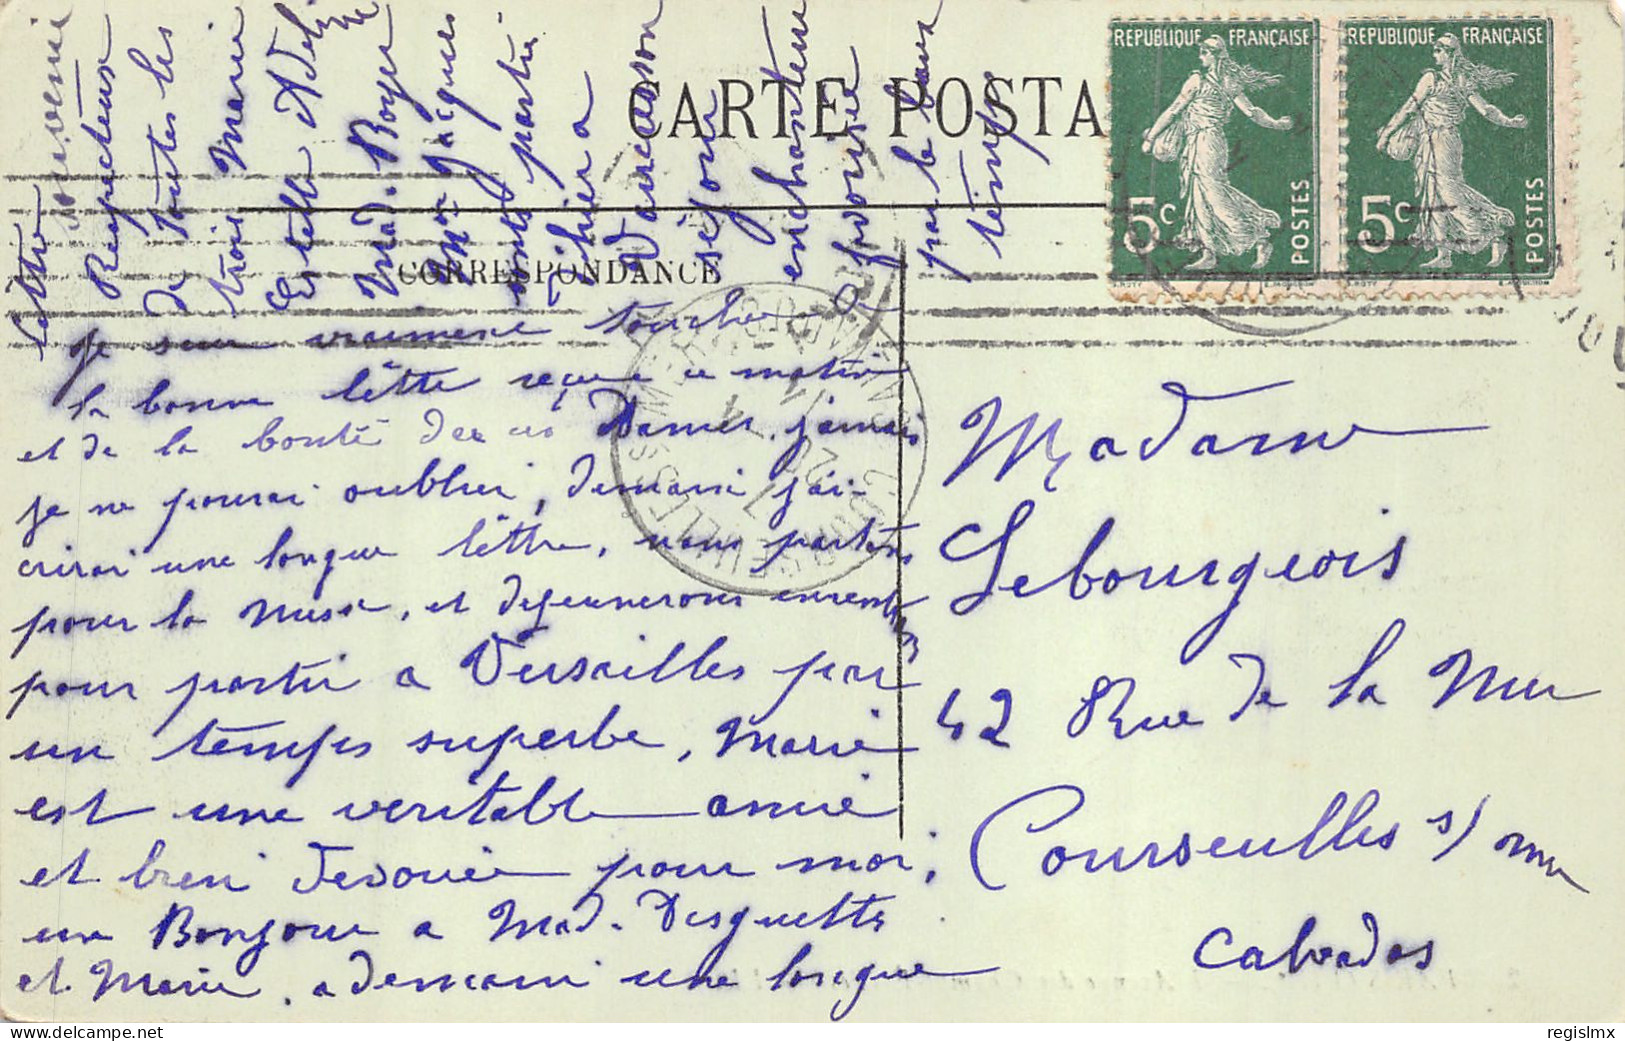 CARTE POSTA
CORRESPONDANCE
REPUBLIQUE FRANÇAISE
5c POSTES
REPUBLIQUE FRANÇAISE
5c POSTES
Je suis vraiment touchée de
la bonne lêttre reçue ce matin
et de la bonté de ces Dames, jamais
je ne pourai oublier, demain j'ai
crirai une longue lêttre, nous partons
pour la messe, et dejeunerons
pour partir a Versailles par
un temps superbe, Marie
est une veritable amie
et bien devouée pour moi,
un Bonjour a Mad. Desguette
et Marie, a demain une longue
lettre
souvenir
Respectueux
de toutes les
trois Marie
Estelle Adeline
Mad. Boyer
Mr Jacques
sont partis
hier a
séjour
enchanteur
favorisé
par le beau
temps
Madame
Lebourgeois
42 Rue de la Mer
Courseulles s/ mer
Calvados
regislmx